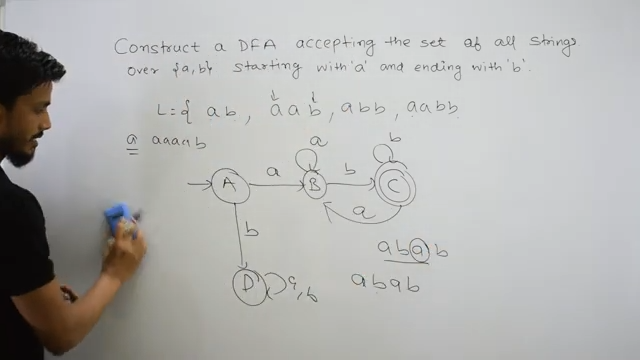 Construct a DFA accepting the set of all strings
over {a,b} starting with 'a' and ending with 'b'.
L={ ab, aab, abb, aabb
a aaaab
a b
A a B b C
a
b
abab
D a,b abab